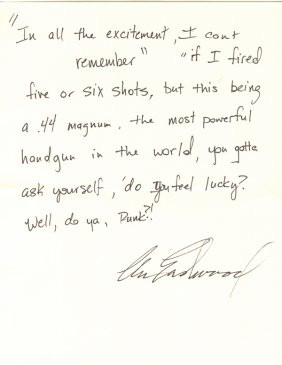 "In all the excitement, I cant
remember" "if I fired
five or six shots, but this being
a .44 magnum, the most powerful
handgun in the world, you gotta
ask yourself, 'do you feel lucky?
Well, do ya, Punk?!
Clint Eastwood